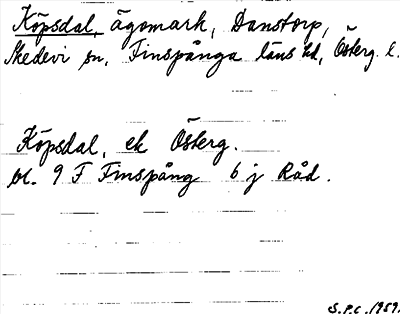 Köpsdal, ägomark, Danstorp,
Skedevi sn, Finspånga läns hd, Österg. l.
Köpsdal, ek Österg.
bl. 9 F Finspång 6 j Råd.
S.P.C. 1959.